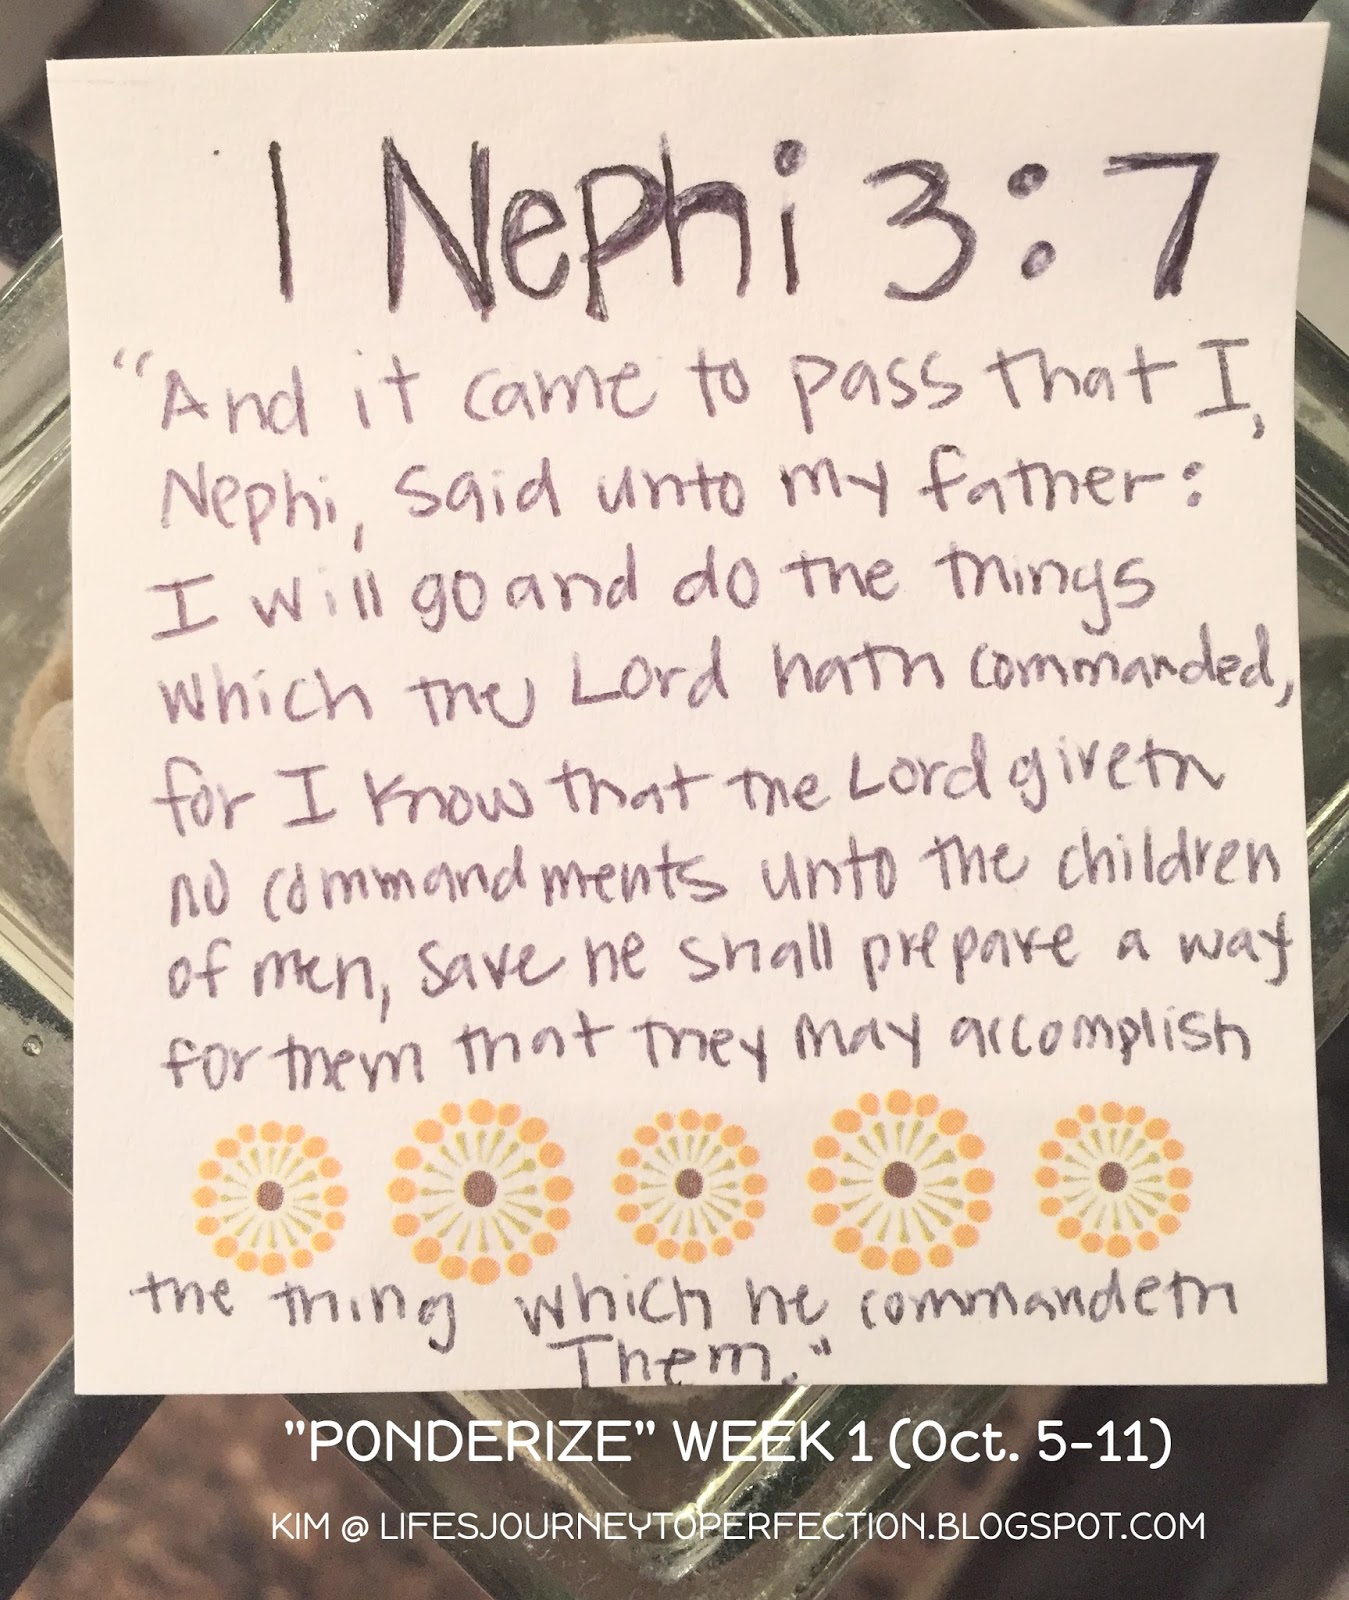 1 Nephi 3:7
"And it came to pass that I,
Nephi, said unto my father:
I will go and do the things
which the Lord hath commanded,
for I know that the Lord giveth
no commandments unto the children
of men, save he shall prepare a way
for them that they may accomplish
the thing which he commandeth
Them."
"PONDERIZE" WEEK 1 (Oct. 5-11)
KIM @ LIFESJOURNEYTOPERFECTION.BLOGSPOT.COM